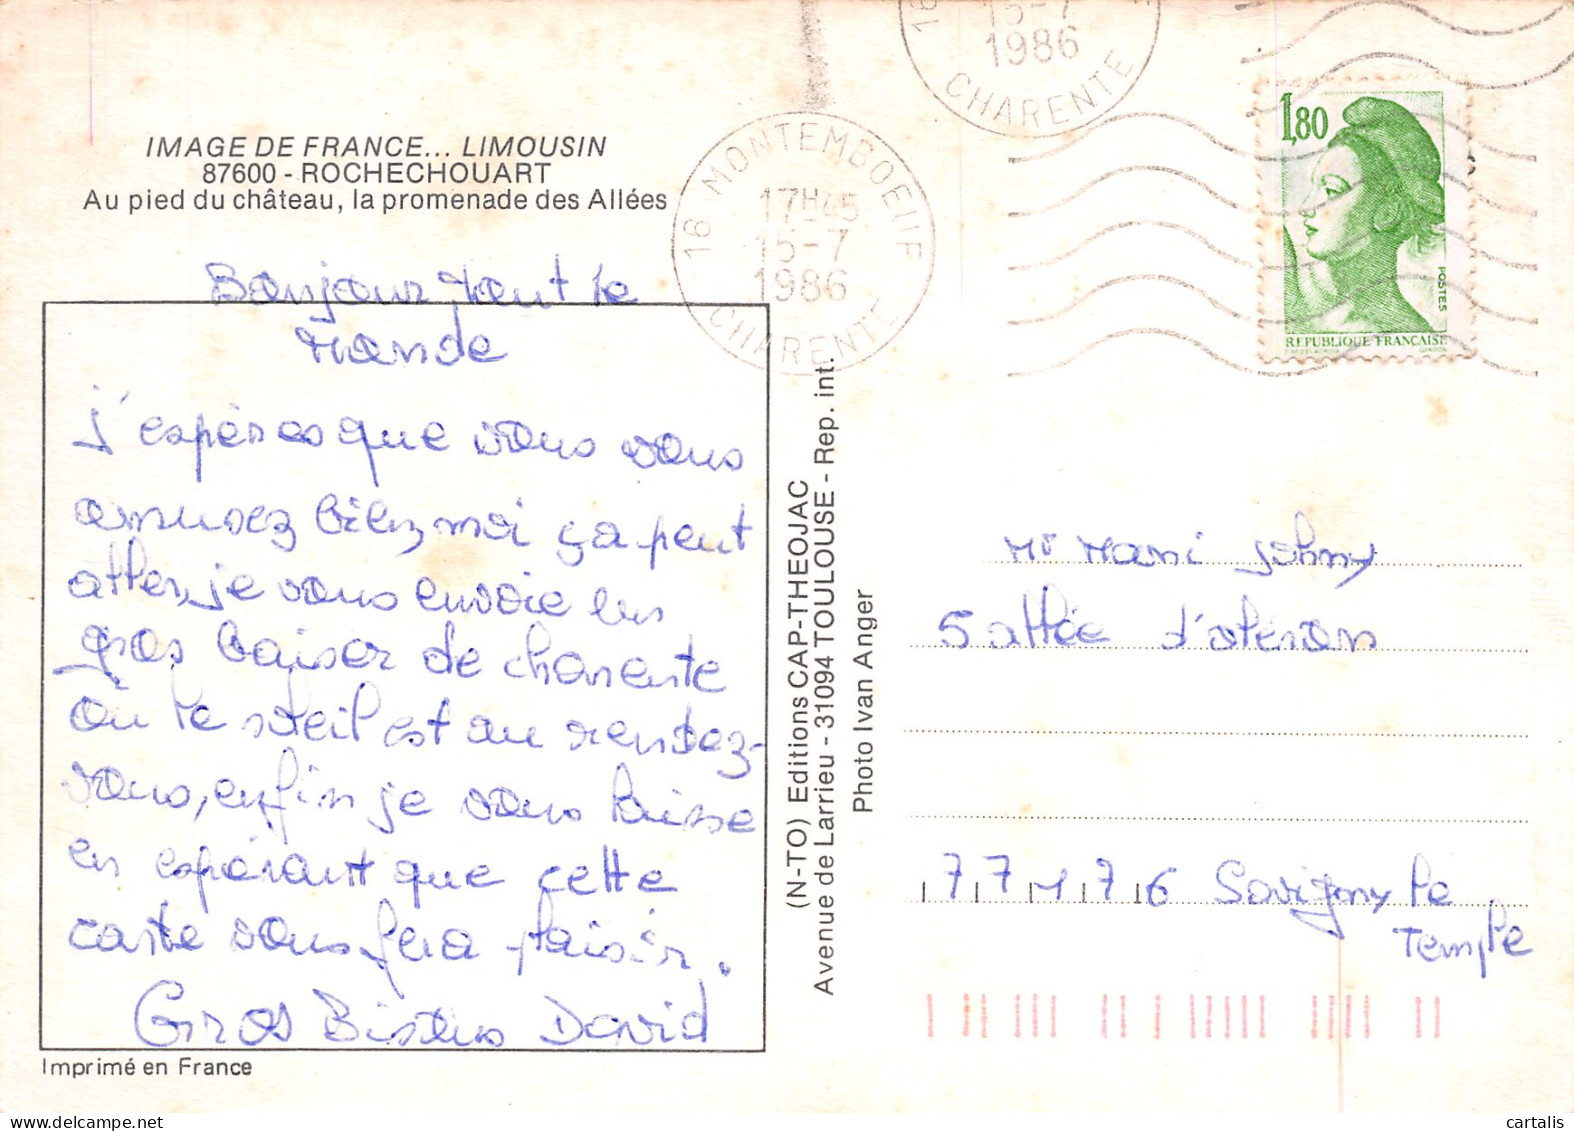 IMAGE DE FRANCE... LIMOUSIN
87600 - ROCHECHOUART
Au pied du château, la promenade des Allées
Bonjour tout le
monde
j'espères que vous vous
amusez bien, moi ça peut
aller, je vous envoie un
gros baiser de charente
ou le soleil est au rendez-
vous, enfin je vous laisse
en espérant que cette
carte vous fera plaisir.
Gros Bisous David
Imprimé en France
(N-TO) Editions CAP-THEOJAC
Avenue de Larrieu - 31094 TOULOUSE - Rep. int.
Photo Ivan Anger
15-7
1986
CHARENTE
16 MONTEMBOEUF
17H45
15-7
1986
CHARENTE
1,80
POSTES
REPUBLIQUE FRANÇAISE
Mr Mani Johny
5 allée d'oléron
77176 Savigny le
Temple
cartalis